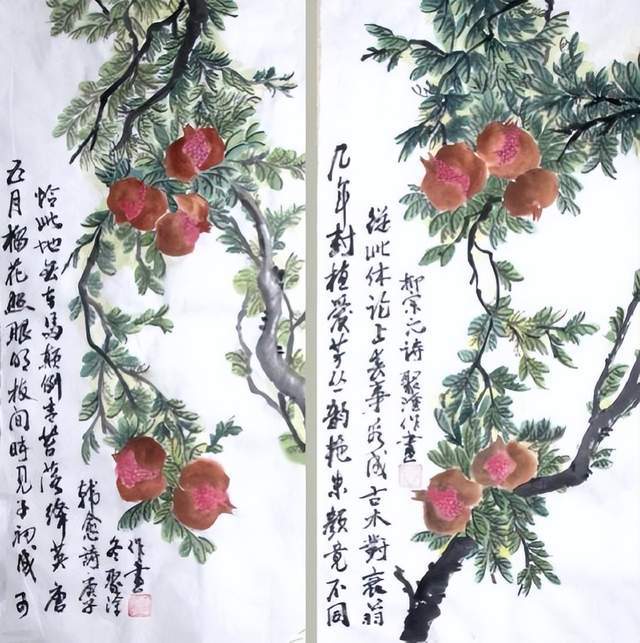 五月榴花照眼明枝间時见子初成可
怜此地无车马颠倒青苔落绛英唐
韩愈詩庚子
冬
作畫
几年封植爱芳丛韵艳朱颜竟不同
從此休论上春事看成古木對衰翁
柳宗元诗 作畫